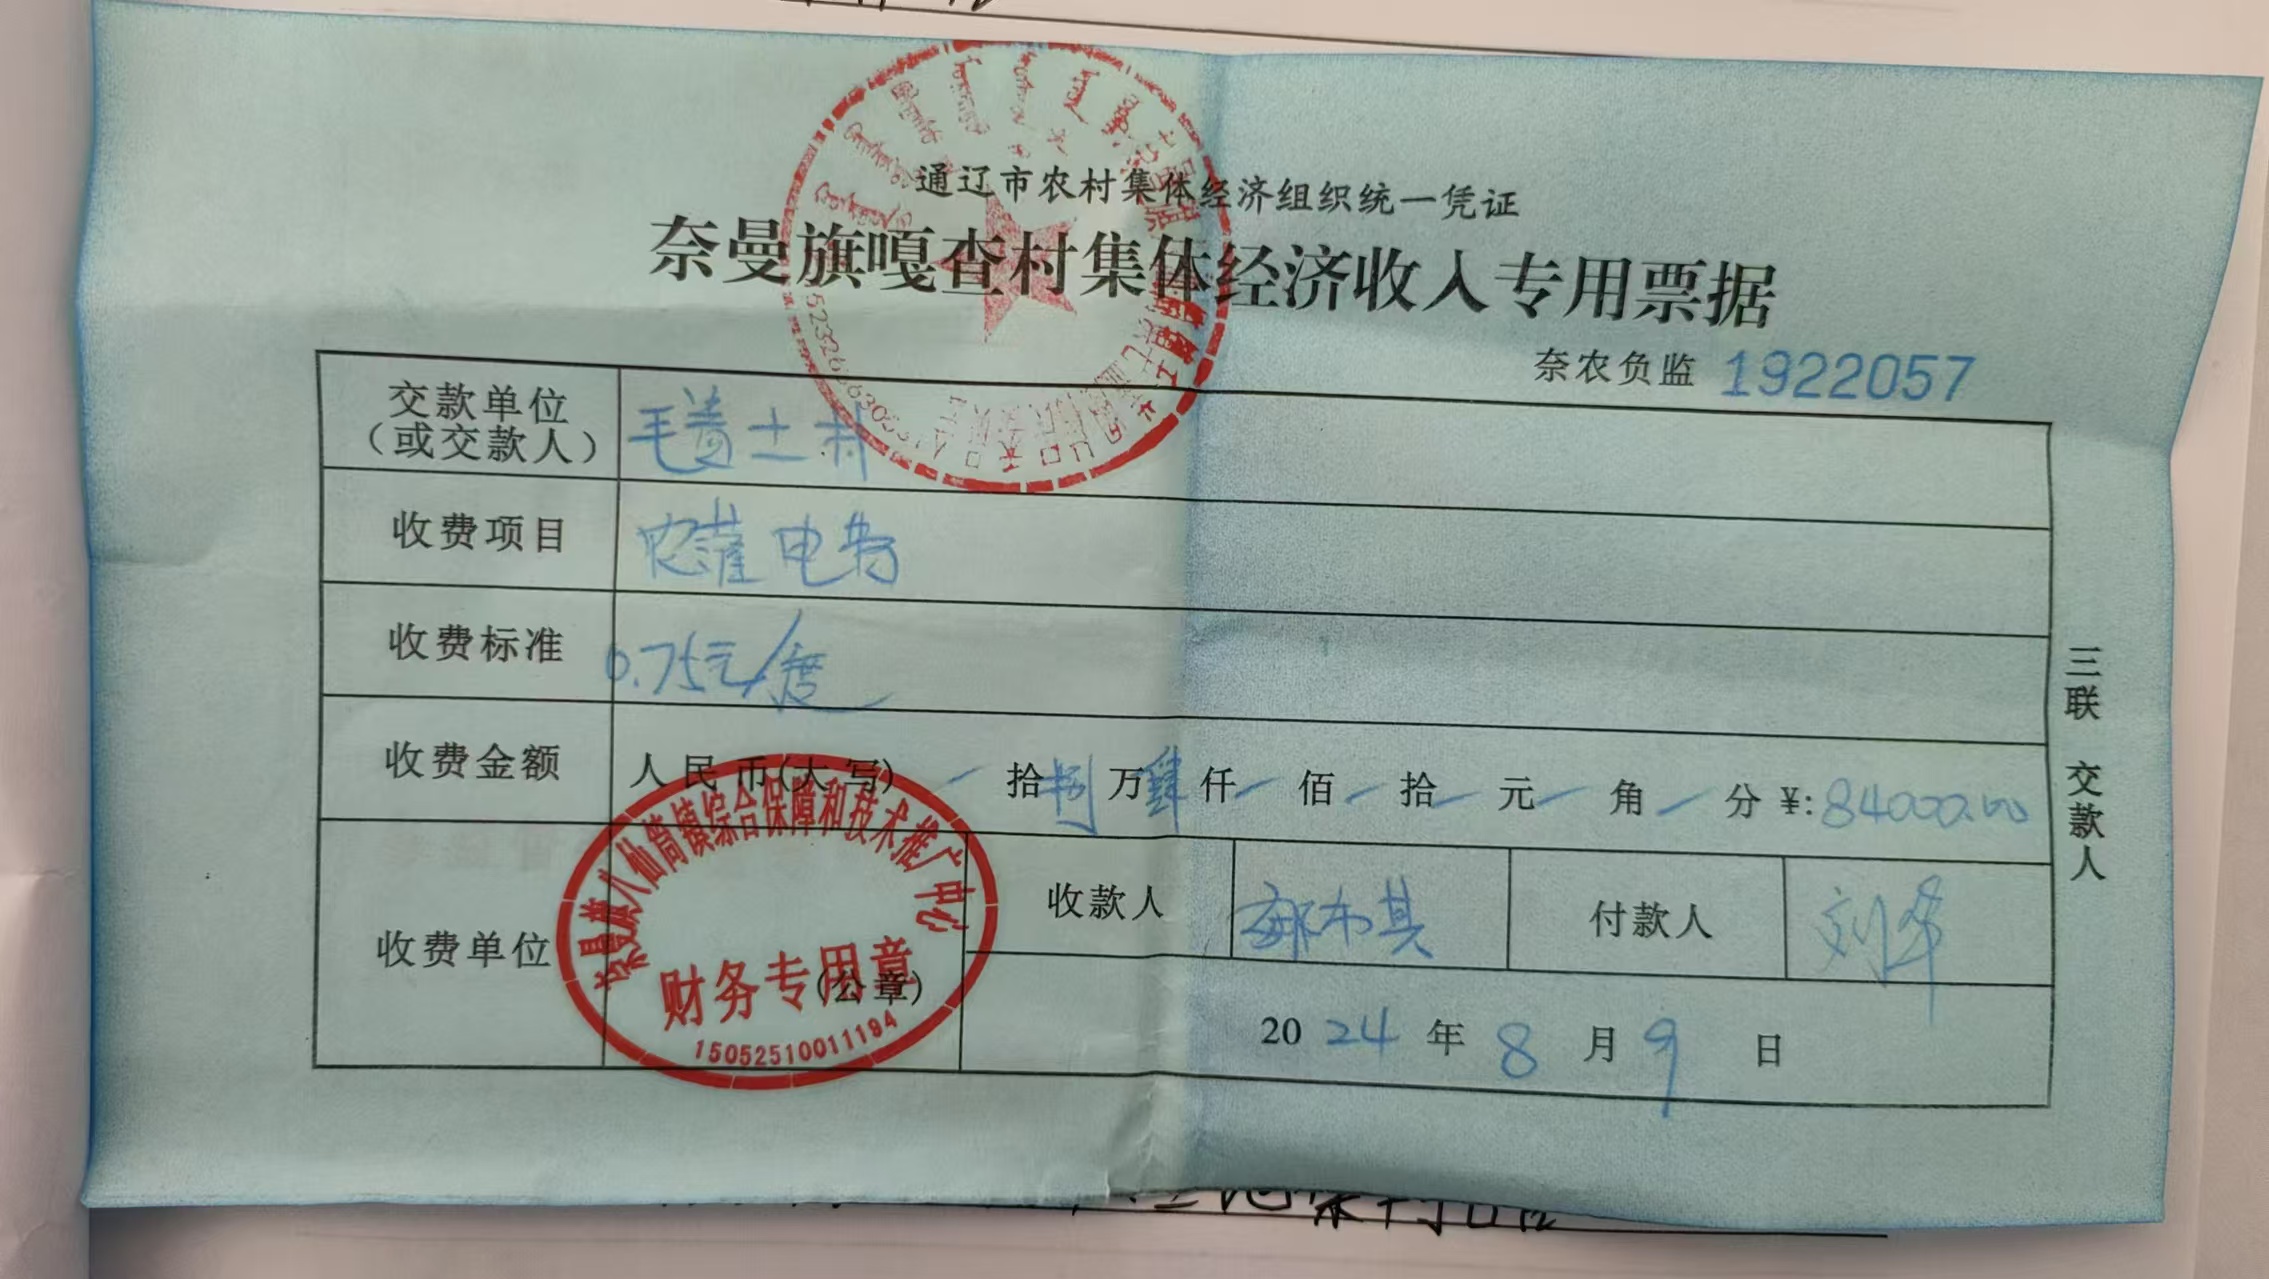 通辽市农村集体经济组织统一凭证
奈曼旗嘎查村集体经济收入专用票据
奈农负监 1922057
交款单位
（或交款人） 毛青土村
收费项目 农灌电费
收费标准 0.75元/度
收费金额 人民币(大写) 拾捌万肆仟 佰 拾 元 角 分 ¥:84000.00
收费单位 (公章)
收款人 付款人 刘军
2024年8月9日
三联 交款人
奈曼旗八仙筒镇综合保障和技术推广中心
财务专用章
15052510011194